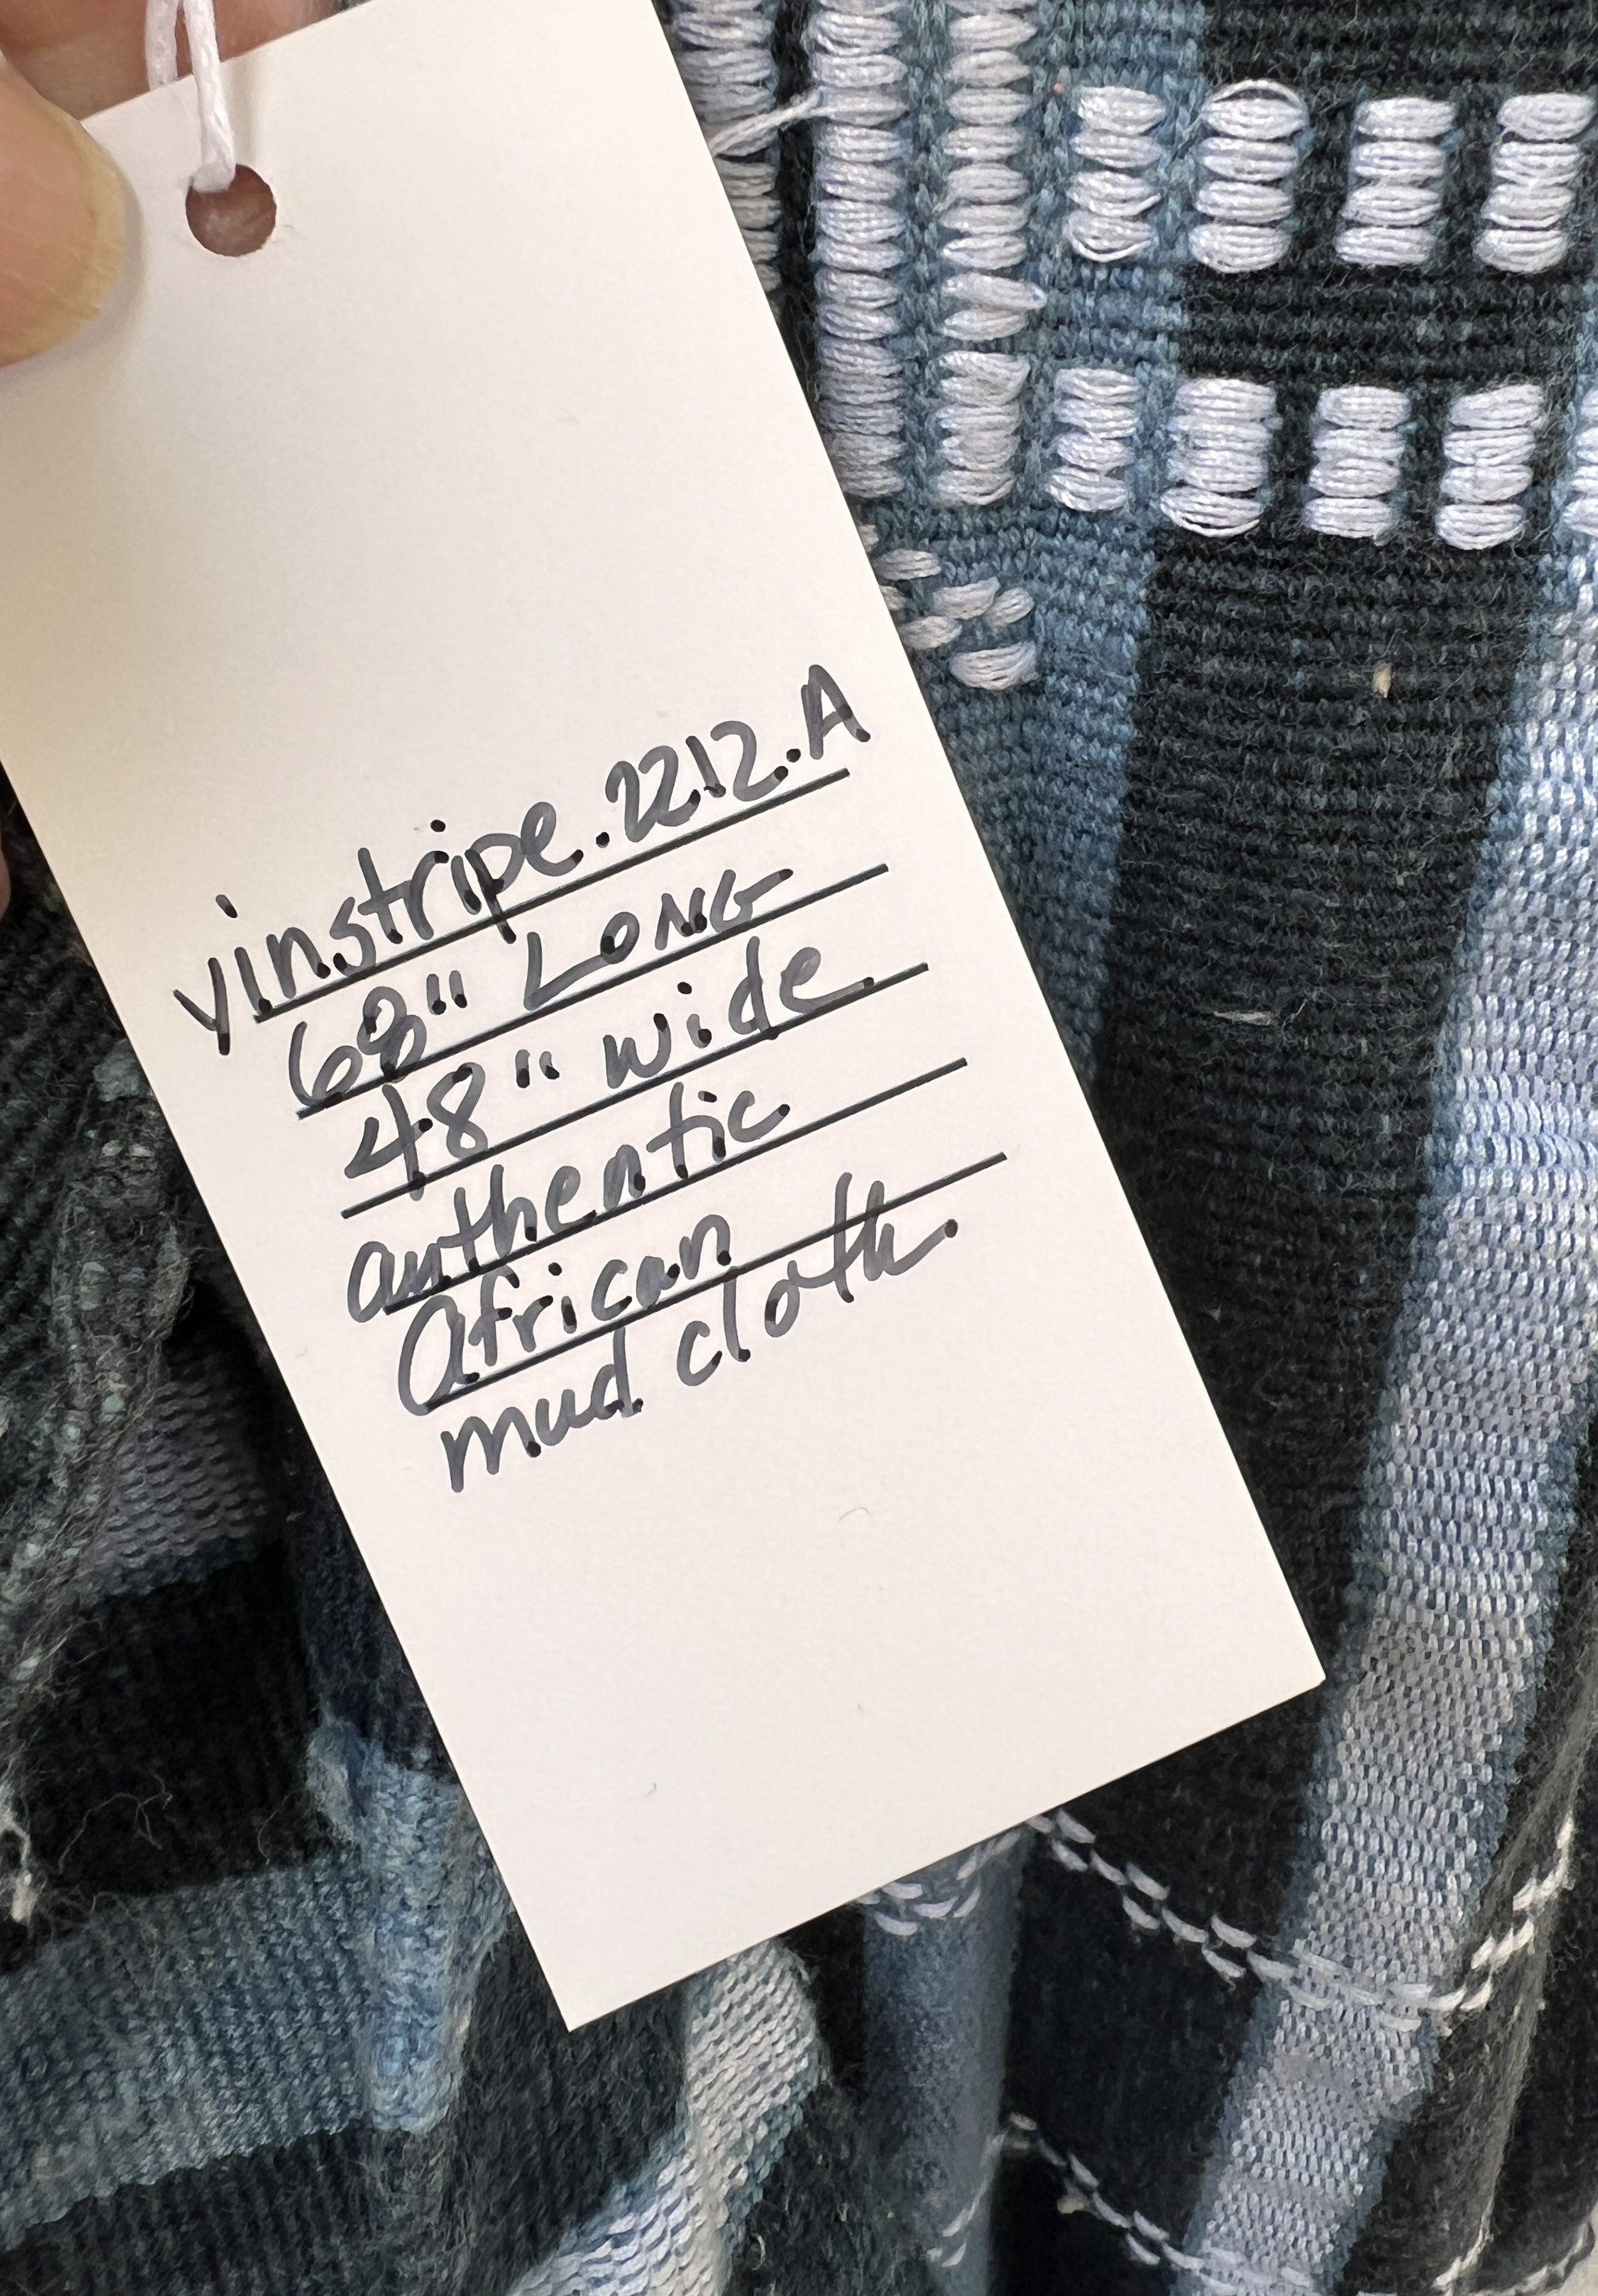 yinstripe.2212.A
68" LONG
48" wide
authentic
African
mud cloth.